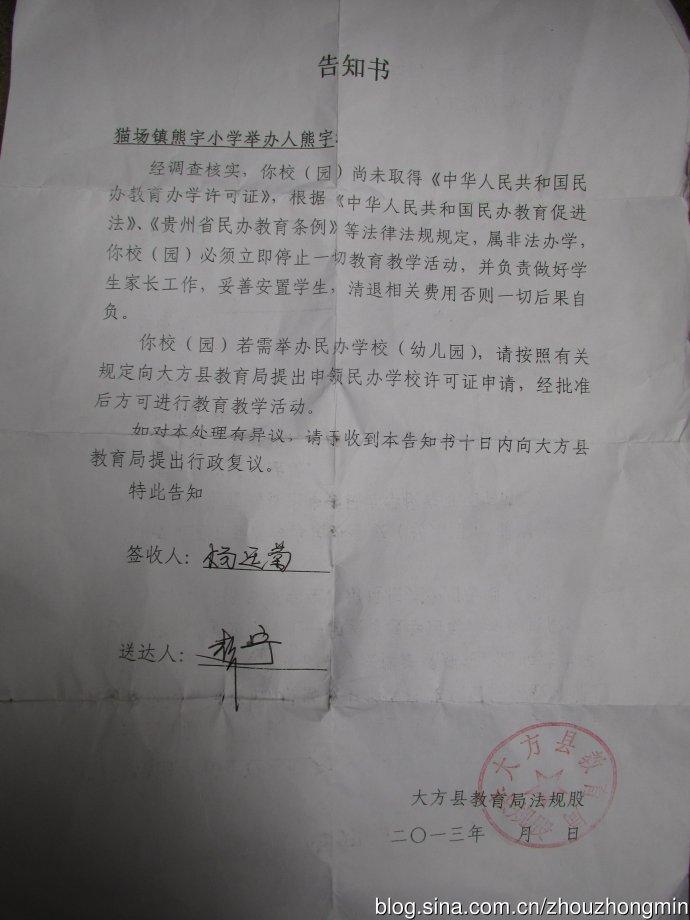 告知书
猫场镇熊宇小学举办人熊宇:
经调查核实，你校（园）尚未取得《中华人民共和国民
办教育办学许可证》，根据《中华人民共和国民办教育促进
法》、《贵州省民办教育条例》等法律法规规定，属非法办学，
你校（园）必须立即停止一切教育教学活动，并负责做好学
生家长工作，妥善安置学生，清退相关费用否则一切后果自
负。
你校（园）若需举办民办学校（幼儿园），请按照有关
规定向大方县教育局提出申领民办学校许可证申请，经批准
后方可进行教育教学活动。
如对本处理有异议，请于收到本告知书十日内向大方县
教育局提出行政复议。
特此告知
签收人：
送达人：
大方县教育局
大方县教育局法规股
二〇一三年 月 日
blog.sina.com.cn/zhouzhongmin